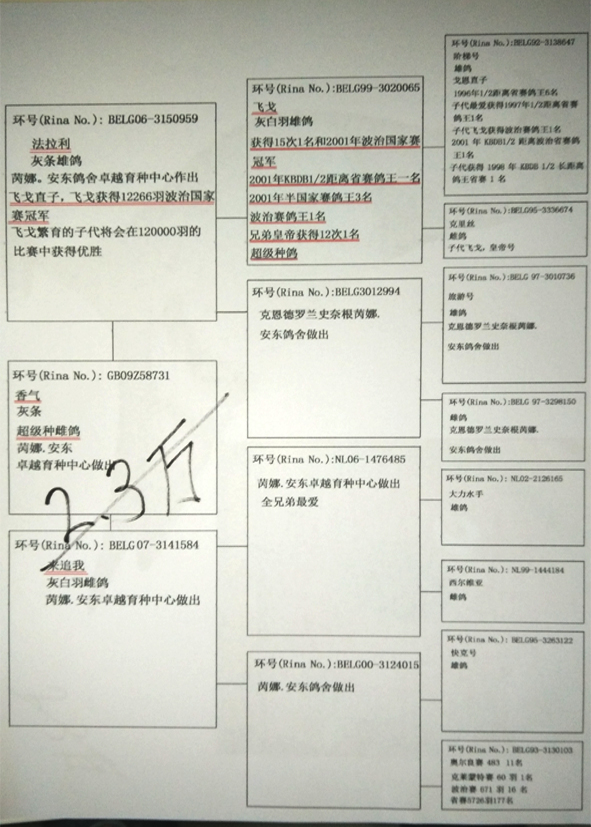 环号(Rina No.): BELG06-3150959
法拉利
灰条雄鸽
芮娜。安东鸽舍卓越育种中心作出
飞戈直子，飞戈获得12266羽波治国家
赛冠军
飞戈繁育的子代将会在120000羽的
比赛中获得优胜
环号(Rina No.): GB09Z58731
香气
灰条
超级种雌鸽
芮娜.安东
卓越育种中心做出
2.3万
环号(Rina No.): BELG07-3141584
来追我
灰白羽雌鸽
芮娜.安东卓越育种中心做出
环号(Rina No.):BELG99-3020065
飞戈
灰白羽雄鸽
获得15次1名和2001年波治国家赛
冠军
2001年KBDB1/2距离省赛鸽王一名
2001年半国家赛鸽王3名
波治赛鸽王1名
兄弟皇帝获得12次1名
超级种鸽
环号(Rina No.):BELG3012994
克恩德罗兰史奈根芮娜.
安东鸽舍做出
环号(Rina No.):NL06-1476485
芮娜.安东卓越育种中心做出
全兄弟最爱
环号(Rina No.):BELG00-3124015
芮娜.安东鸽舍做出
环号(Rina No.):BELG92-3138647
阶梯号
雄鸽
戈恩直子
1996年1/2距离省赛鸽王6名
子代最爱获得1997年1/2距离省赛
鸽王1名
子代飞戈获得波治赛鸽王1名
2001 年 KBDB1/2 距离波治省赛鸽
王1名
子代获得 1998 年 KBDB 1/2 长距离
鸽王省赛 1 名
环号(Rina No.):BELG95-3336674
克里丝
雌鸽
子代飞戈，皇帝号
环号(Rina No.):BELG 97-3010736
号
雄鸽
克恩德罗兰史奈根芮娜.
安东鸽舍做出
环号(Rina No.):BELG 97-3298150
雌鸽
克恩德罗兰史奈根芮娜.
安东鸽舍做出
环号(Rina No.):NL02-2126165
大力水手
雄鸽
环号(Rina No.): NL99-1444184
西尔维亚
雌鸽
环号(Rina No.): BELG95-3263122
快克号
雄鸽
环号(Rina No.): BELG93-3130103
奥尔良赛 483 11名
克莱蒙特赛 60 羽 1名
波治赛 671 羽 16 名
省赛5726羽177名